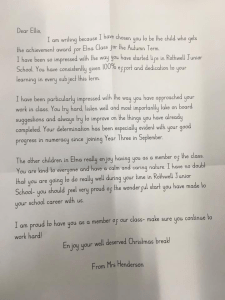 Dear Ella,
I am writing because I have chosen you to be the child who gets
the achievement award for Elma Class for the Autumn Term.
I have been so impressed with the way you have started life in Rothwell Junior
School. You have consistently given 100% effort and dedication to your
learning in every subject this term.
I have been particularly impressed with the way you have approached your
work in class. You try hard, listen well and most importantly take on board
suggestions and always try to improve on the things you have already
completed. Your determination has been especially evident with your good
progress in numeracy since joining Year Three in September.
The other children in Elma really enjoy having you as a member of the class.
You are kind to everyone and have a calm and caring nature. I have no doubt
that you are going to do really well during your time in Rothwell Junior
School- you should feel very proud of the wonderful start you have made to
your school career with us.
I am proud to have you as a member of our class- make sure you continue to
work hard!
Enjoy your well deserved Christmas break!
From Mrs Henderson